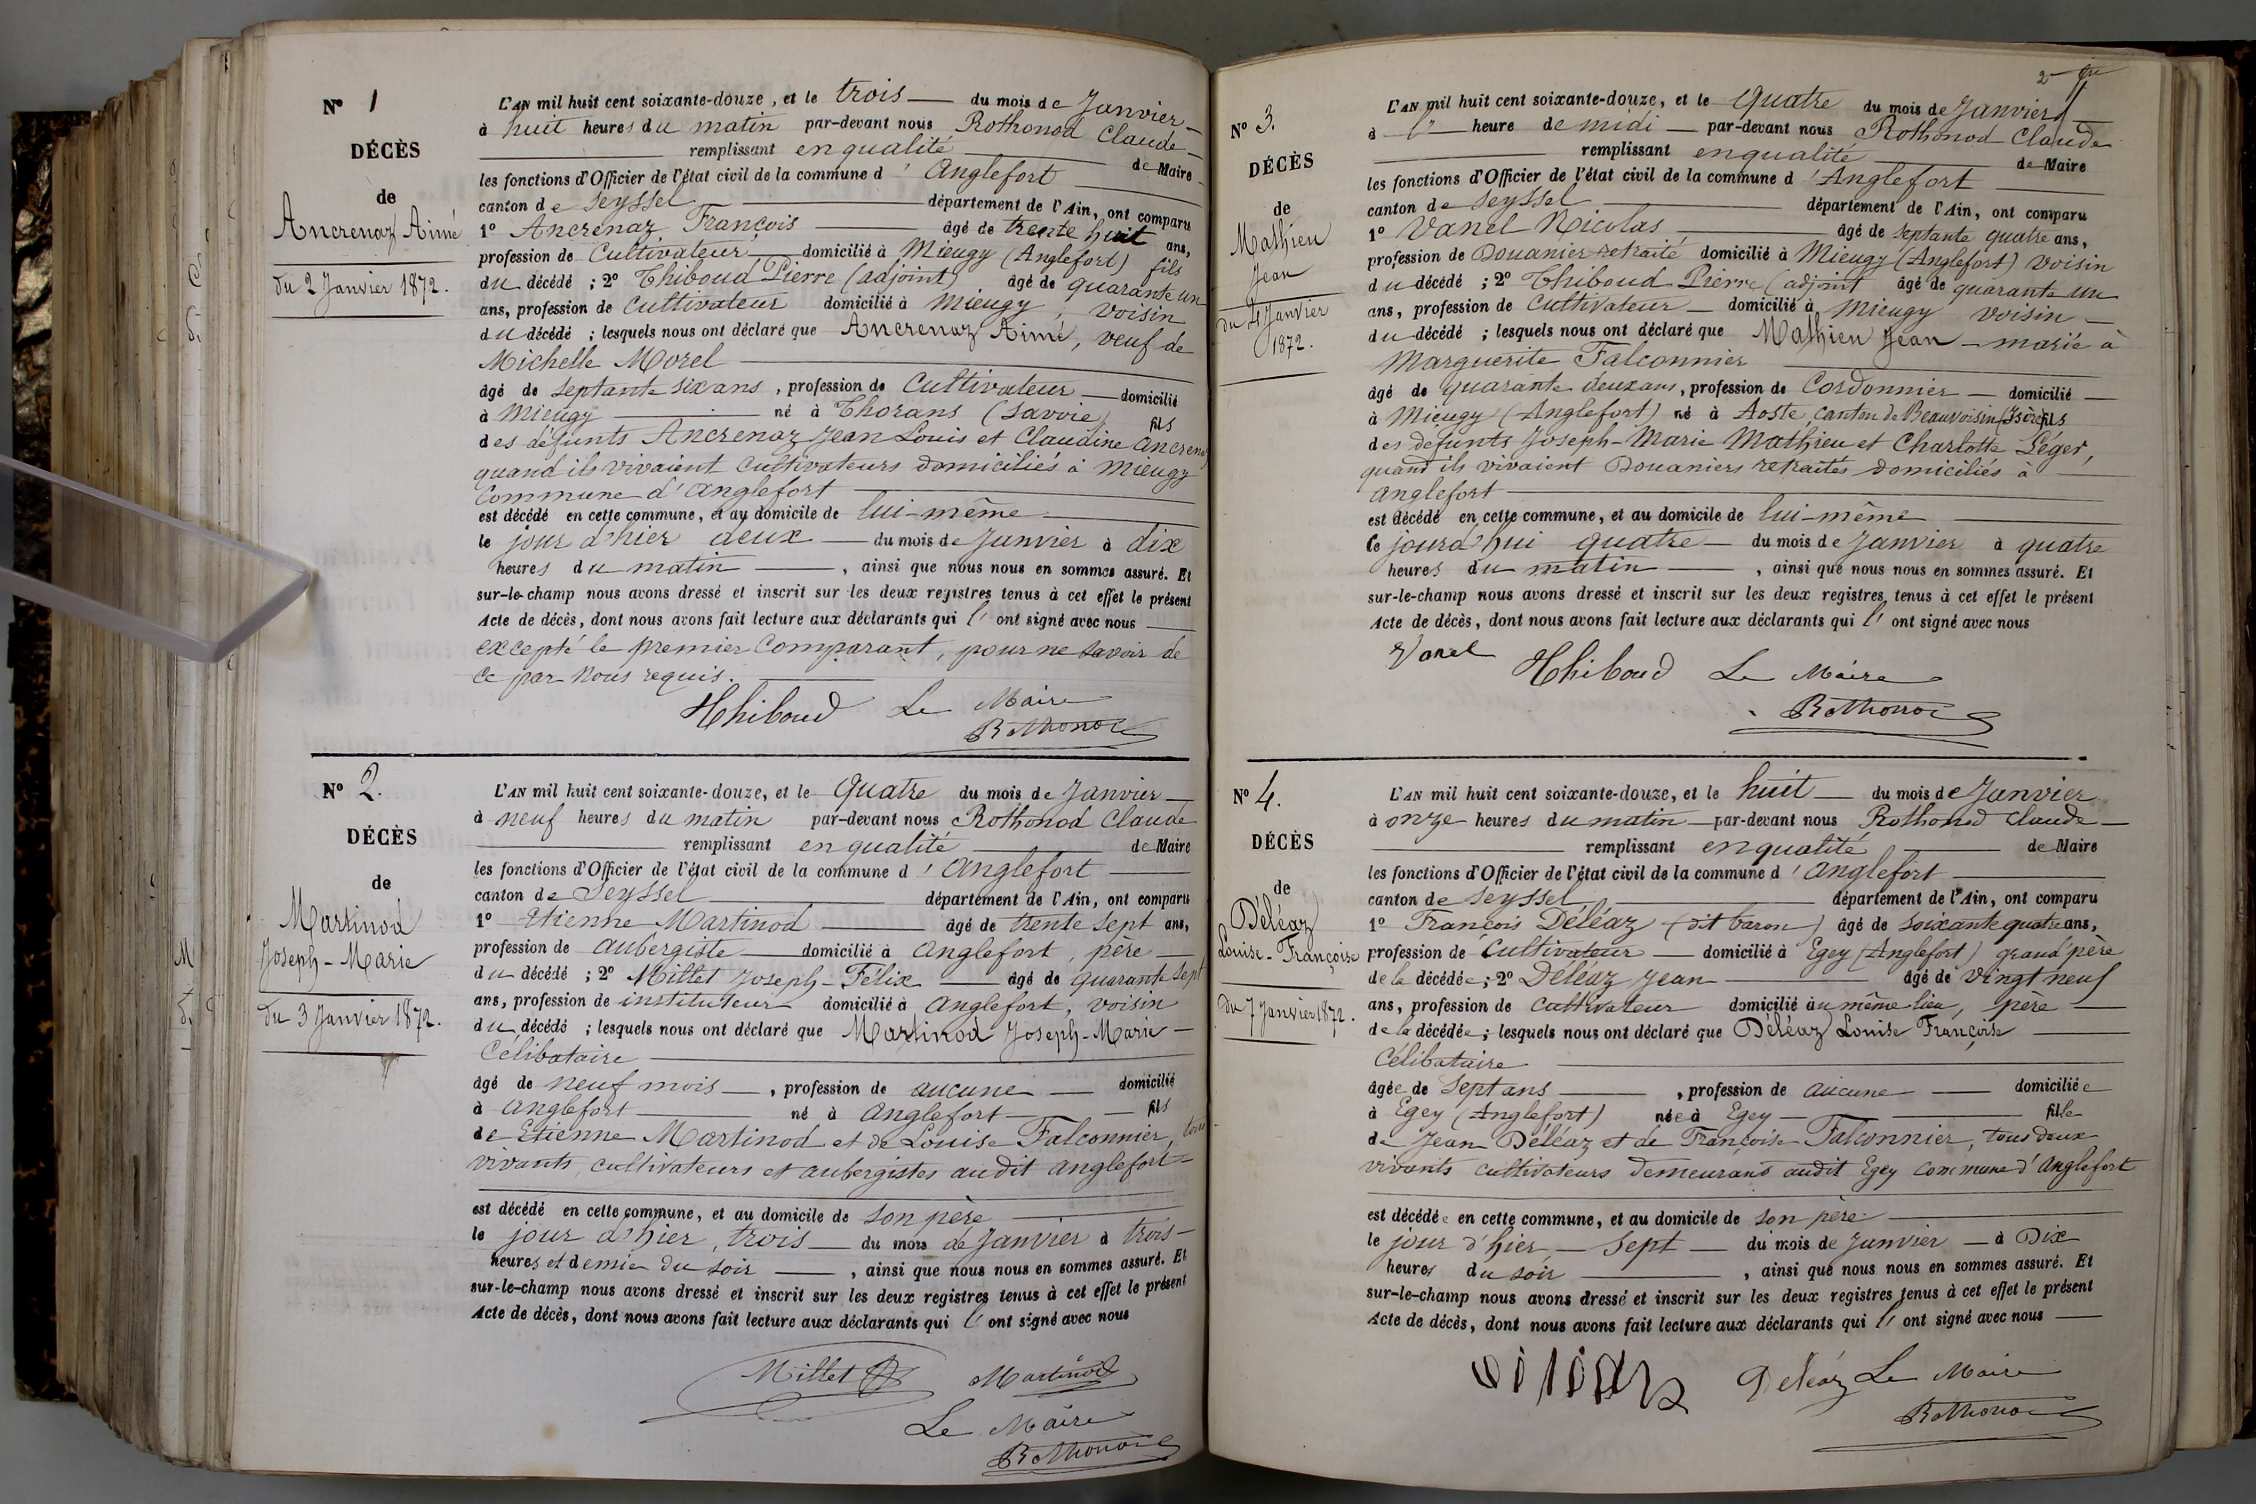 N° 1
DÉCÈS
de
Ancrenaz Aimé
du 2 Janvier 1872.
L'AN mil huit cent soixante-douze, et le trois du mois de Janvier
à huit heures du matin par-devant nous Rothonod Claude
remplissant en qualité de Maire
les fonctions d'Officier de l'état civil de la commune d'Anglefort
canton de Seyssel département de l'Ain, ont comparu
1° Ancrenaz François âgé de trente huit ans,
profession de Cultivateur domicilié à Mieugy (Anglefort) fils
du décédé ; 2° Thiboud Pierre (adjoint) âgé de quarante un
ans, profession de cultivateur domicilié à Mieugy, voisin
du décédé ; lesquels nous ont déclaré que Ancrenaz Aimé, veuf de
Michelle Morel
âgé de septante six ans, profession de Cultivateur domicilié
à Mieugy né à Thorans (Savoie) fils
des défunts Ancrenaz Jean Louis et Claudine Ancrenaz
quand ils vivaient cultivateurs domiciliés à Mieugy
Commune d'Anglefort
est décédé en cette commune, et au domicile de lui-même
le jour d'hier deux du mois de Janvier à dix
heures du matin, ainsi que nous nous en sommes assuré. Et
sur-le-champ nous avons dressé et inscrit sur les deux registres tenus à cet effet le présent
Acte de décès, dont nous avons fait lecture aux déclarants qui l'ont signé avec nous
excepté le premier Comparant, pour ne savoir de
ce par nous requis.
Thiboud Le Maire
Rothonod
N° 2.
DÉCÈS
de
Martinod
Joseph-Marie
du 3 Janvier 1872.
L'AN mil huit cent soixante-douze, et le quatre du mois de Janvier
à neuf heures du matin par-devant nous Rothonod Claude
remplissant en qualité de Maire
les fonctions d'Officier de l'état civil de la commune d'Anglefort
canton de Seyssel département de l'Ain, ont comparu
1° Etienne Martinod âgé de trente sept ans,
profession de aubergiste domicilié à Anglefort, père
du décédé ; 2° Millet Joseph-Félix âgé de quarante sept
ans, profession de instituteur domicilié à Anglefort, voisin
du décédé ; lesquels nous ont déclaré que Martinod Joseph-Marie
Célibataire
âgé de neuf mois, profession de aucune domicilié
à Anglefort né à Anglefort fils
de Etienne Martinod et de Louise Falconnier, tous
vivants, cultivateurs et aubergistes audit Anglefort
est décédé en cette commune, et au domicile de son père
le jour d'hier, trois du mois de Janvier à trois
heures et demie du soir, ainsi que nous nous en sommes assuré. Et
sur-le-champ nous avons dressé et inscrit sur les deux registres tenus à cet effet le présent
Acte de décès, dont nous avons fait lecture aux déclarants qui l'ont signé avec nous
Millet Martinod
Le Maire
Rothonod
2
N° 3.
DÉCÈS
de
Mathieu
Jean
du 4 Janvier
1872.
L'AN mil huit cent soixante-douze, et le quatre du mois de Janvier
à heure de midi par-devant nous Rothonod Claude
remplissant en qualité de Maire
les fonctions d'Officier de l'état civil de la commune d'Anglefort
canton de Seyssel département de l'Ain, ont comparu
1° Vanel Nicolas âgé de septante quatre ans,
profession de Douanier retraité domicilié à Mieugy (Anglefort) voisin
du décédé ; 2° Thiboud Pierre (adjoint âgé de quarante un
ans, profession de cultivateur domicilié à Mieugy voisin
du décédé ; lesquels nous ont déclaré que Mathieu Jean marié à
Marguerite Falconnier
âgé de quarante deux ans, profession de Cordonnier domicilié
à Mieugy (Anglefort) né à Aoste, canton de Beauvoisin (Isère) fils
des défunts Joseph-Marie Mathieu et Charlotte Léger,
quand ils vivaient Douaniers retraités domiciliés à
Anglefort
est décédé en cette commune, et au domicile de lui-même
le jourd'hui quatre du mois de Janvier à quatre
heures du matin, ainsi que nous nous en sommes assuré. Et
sur-le-champ nous avons dressé et inscrit sur les deux registres tenus à cet effet le présent
Acte de décès, dont nous avons fait lecture aux déclarants qui l'ont signé avec nous
Vanel Thiboud Le Maire
Rothonod
N° 4.
DÉCÈS
de
Déléaz
Louise-Françoise
du 7 Janvier 1872.
L'AN mil huit cent soixante-douze, et le huit du mois de Janvier
à onze heures du matin par-devant nous Rothonod Claude
remplissant en qualité de Maire
les fonctions d'Officier de l'état civil de la commune d'Anglefort
canton de Seyssel département de l'Ain, ont comparu
1° François Déléaz (dit baron) âgé de soixante quatre ans,
profession de Cultivateur domicilié à Egey (Anglefort) grand'père
de la décédée ; 2° Déléaz Jean âgé de vingt neuf
ans, profession de cultivateur domicilié au même lieu, père
de la décédée ; lesquels nous ont déclaré que Déléaz Louise Françoise
Célibataire
âgée de sept ans, profession de aucune domiciliée
à Egey (Anglefort) née à Egey fille
de Jean Déléaz et de Françoise Falconnier, tous deux
vivants cultivateurs demeurans audit Egey commune d'Anglefort
est décédée en cette commune, et au domicile de son père
le jour d'hier, sept du mois de Janvier à Dix
heures du soir, ainsi que nous nous en sommes assuré. Et
sur-le-champ nous avons dressé et inscrit sur les deux registres tenus à cet effet le présent
Acte de décès, dont nous avons fait lecture aux déclarants qui l'ont signé avec nous
Déléaz Le Maire
Rothonod